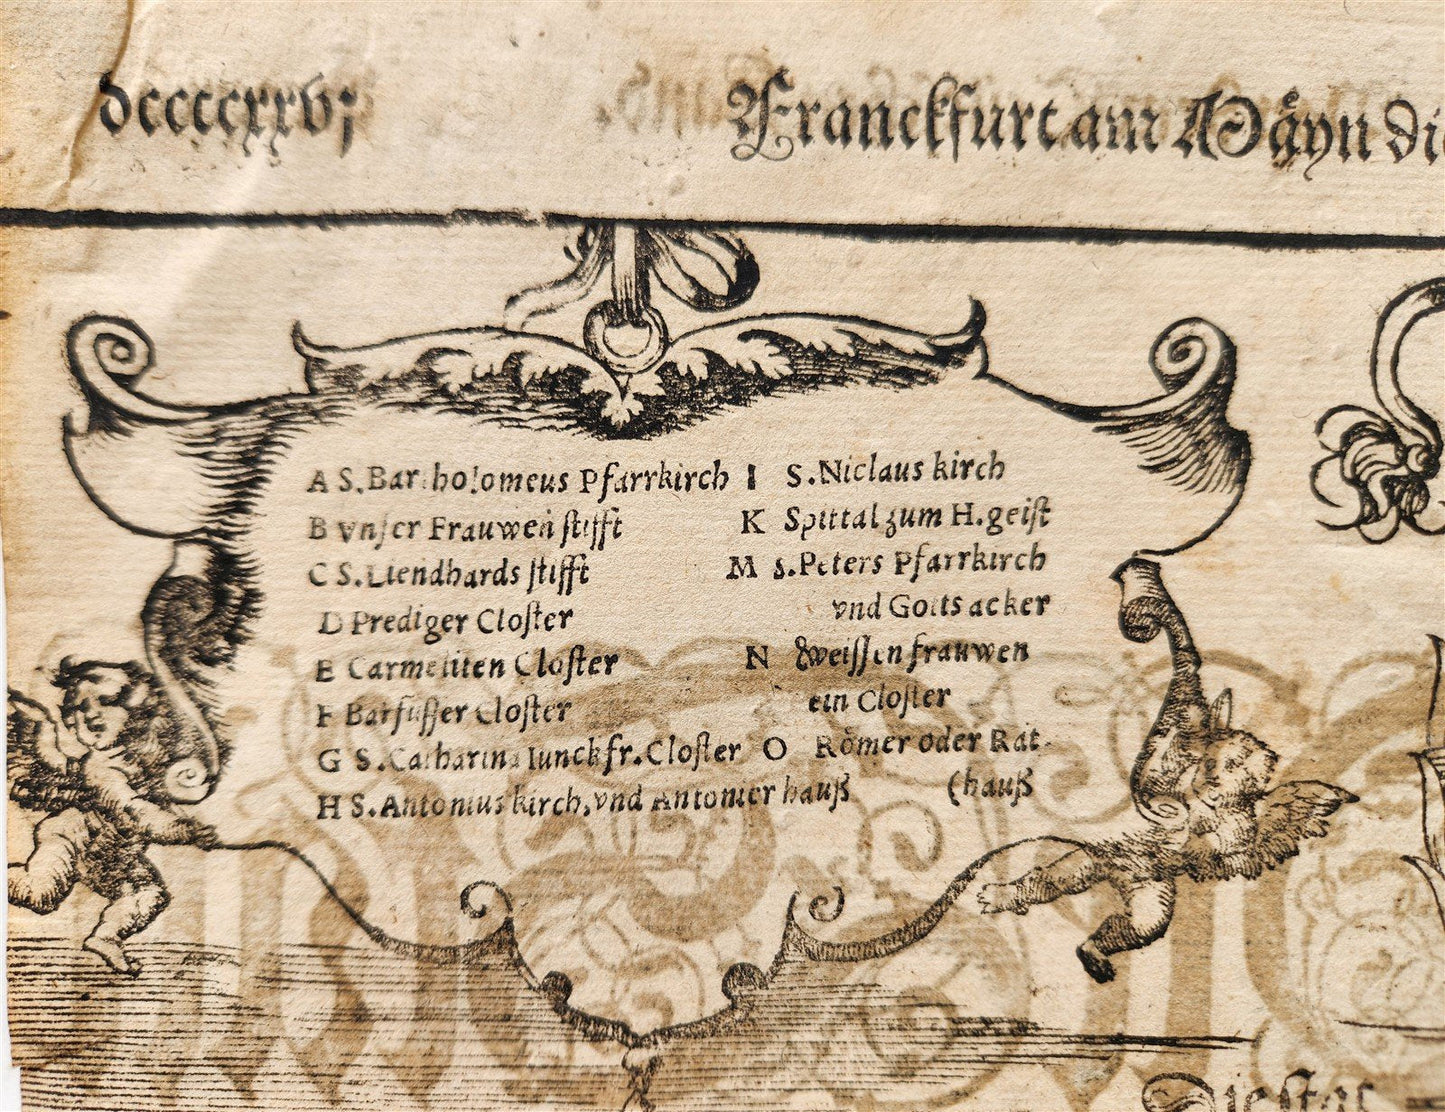 dcccccxxvj
Franckfurt am Mäyn die
A S. Bartholomeus Pfarrkirch
B vnser Frauwen stifft
C S. Liendhards stifft
D Prediger Closter
E Carmeliten Closter
F Barfusser Closter
G S. Catharina Iunckfr. Closter
H S. Antonius kirch, vnd Antonier hauß
I S. Niclaus kirch
K Spittal zum H. geist
M S. Peters Pfarrkirch
vnd Gotts acker
N Zweissen frauwen
ein Closter
O Römer oder Rat-
(hauß